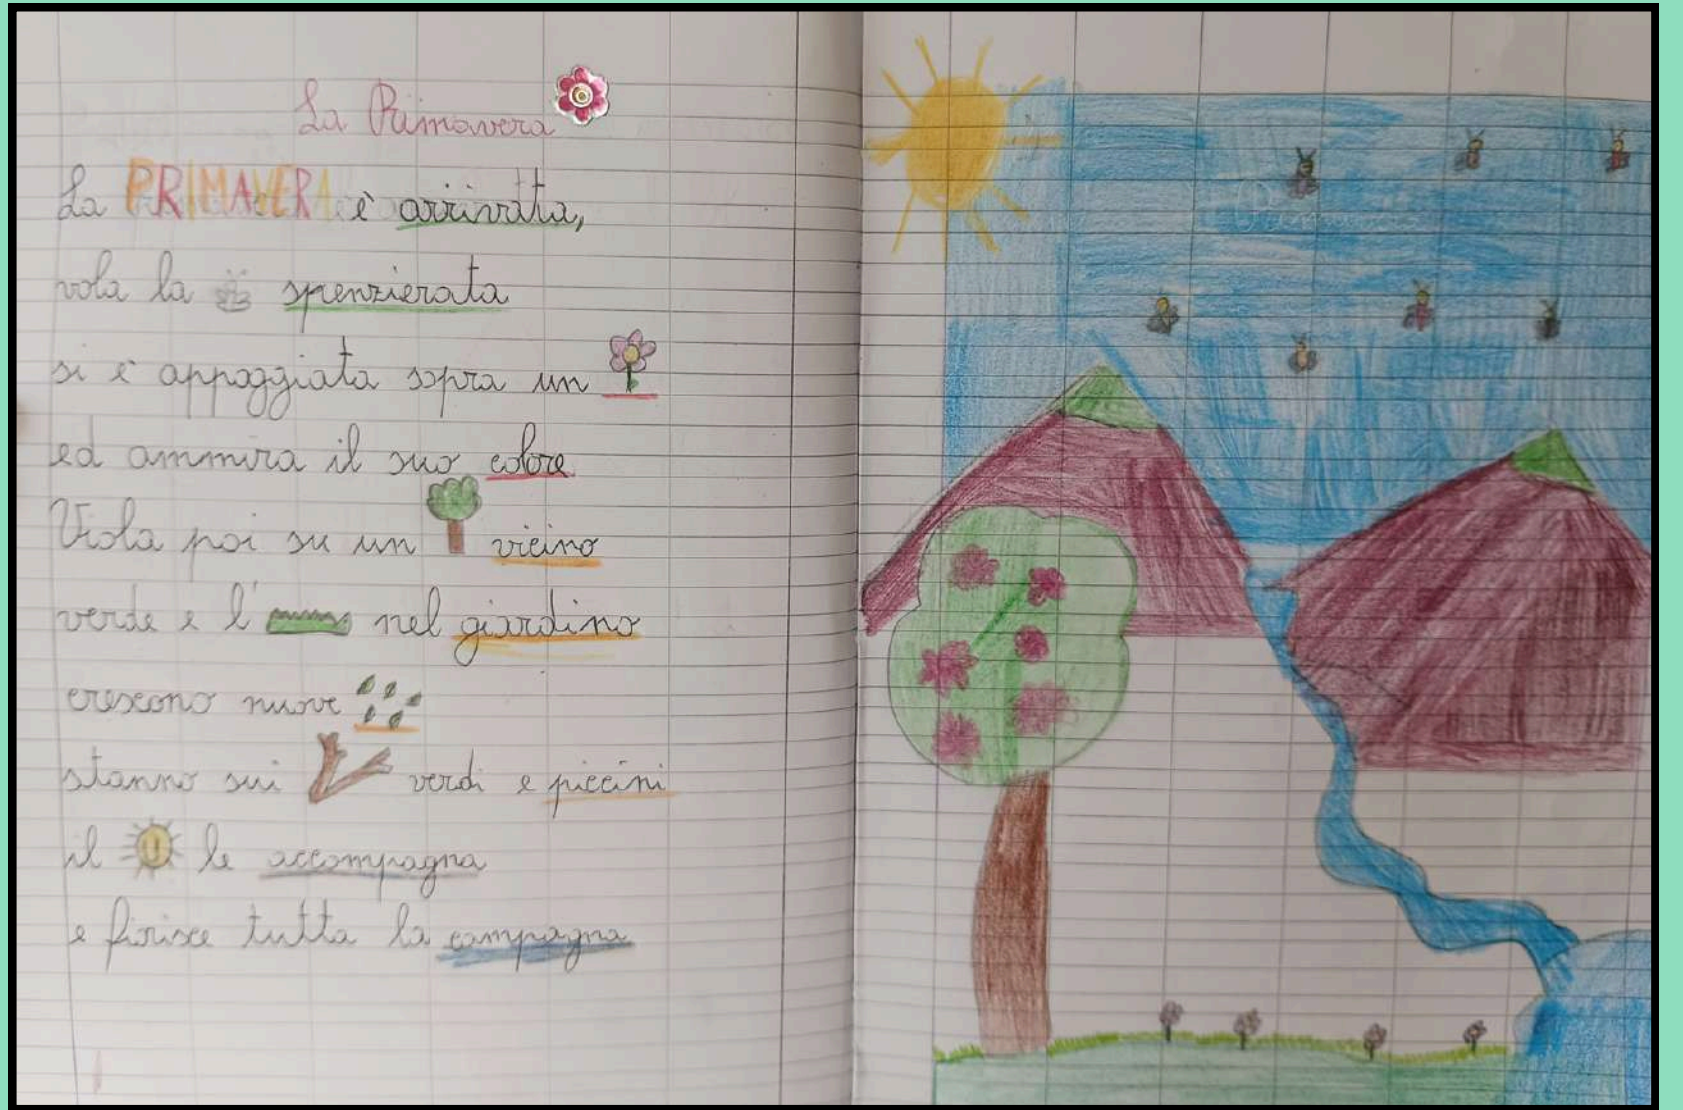 La Primavera
La PRIMAVERA è arrivata,
vola la spenzierata
si è appoggiata sopra un
ed ammira il suo colore
Vola poi su un vicino
verde e l' nel giardino
crescono nuove
stanno sui verdi e piccini
il le accompagna
e fiorisce tutta la campagna